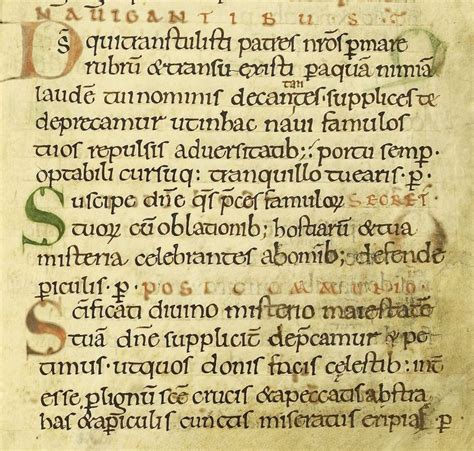 NAVIGANTIBUS
D̄s̄ qui transtulisti patres nr̄os p̱ mare
rubrū & transuexisti p̱ aquā nimiā
laudem tui nominis decantantes. supplices te
deprecamur ut in hac naui famulos
tuos repulsis aduersitatib; portu semp̱
optabili cursuq; tranquillo tuearis. p̱.
Suscipe dn̄e qs̄ p̄ces famulor̄ SECRET̄
tuor̄ cū oblationib; hostiarū & tua
misteria celebrantes ab om̄ib; defende
p̱iculis. p̱. POST COMMUNIO.
Sc̄ificati diuino misterio maiestatē
tuā dn̄e suppliciter dep̄camur & pe
timus. ut quos donis facis cęlestib; int̄
esse p̱ lignum sc̄e crucis & a peccatis abstra
has & a p̱iculis cunctis miseratus eripias p̱